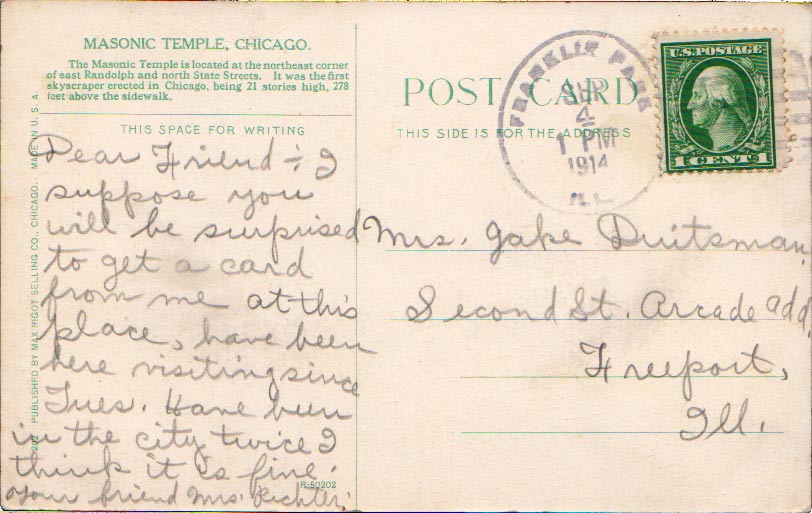 MASONIC TEMPLE, CHICAGO.
The Masonic Temple is located at the northeast corner
of east Randolph and north State Streets. It was the first
skyscraper erected in Chicago, being 21 stories high, 278
feet above the sidewalk.
THIS SPACE FOR WRITING
Dear Friend :- I
suppose you
will be surprised
to get a card
from me at this
place, have been
here visiting since
Tues. Have been
in the city twice I
think it is fine.
Your friend Mrs. Richter.
202 PUBLISHED BY MAX RIGOT SELLING CO., CHICAGO. MADE IN U.S.A.
R-50202
POST CARD
THIS SIDE IS FOR THE ADDRESS
FRANKLIN PARK
SEP
4
1 PM
1914
ILL.
U.S. POSTAGE
1 CENT 1
Mrs. Jake Duitsman,
Second St. Arcade add.
Freeport,
Ill.